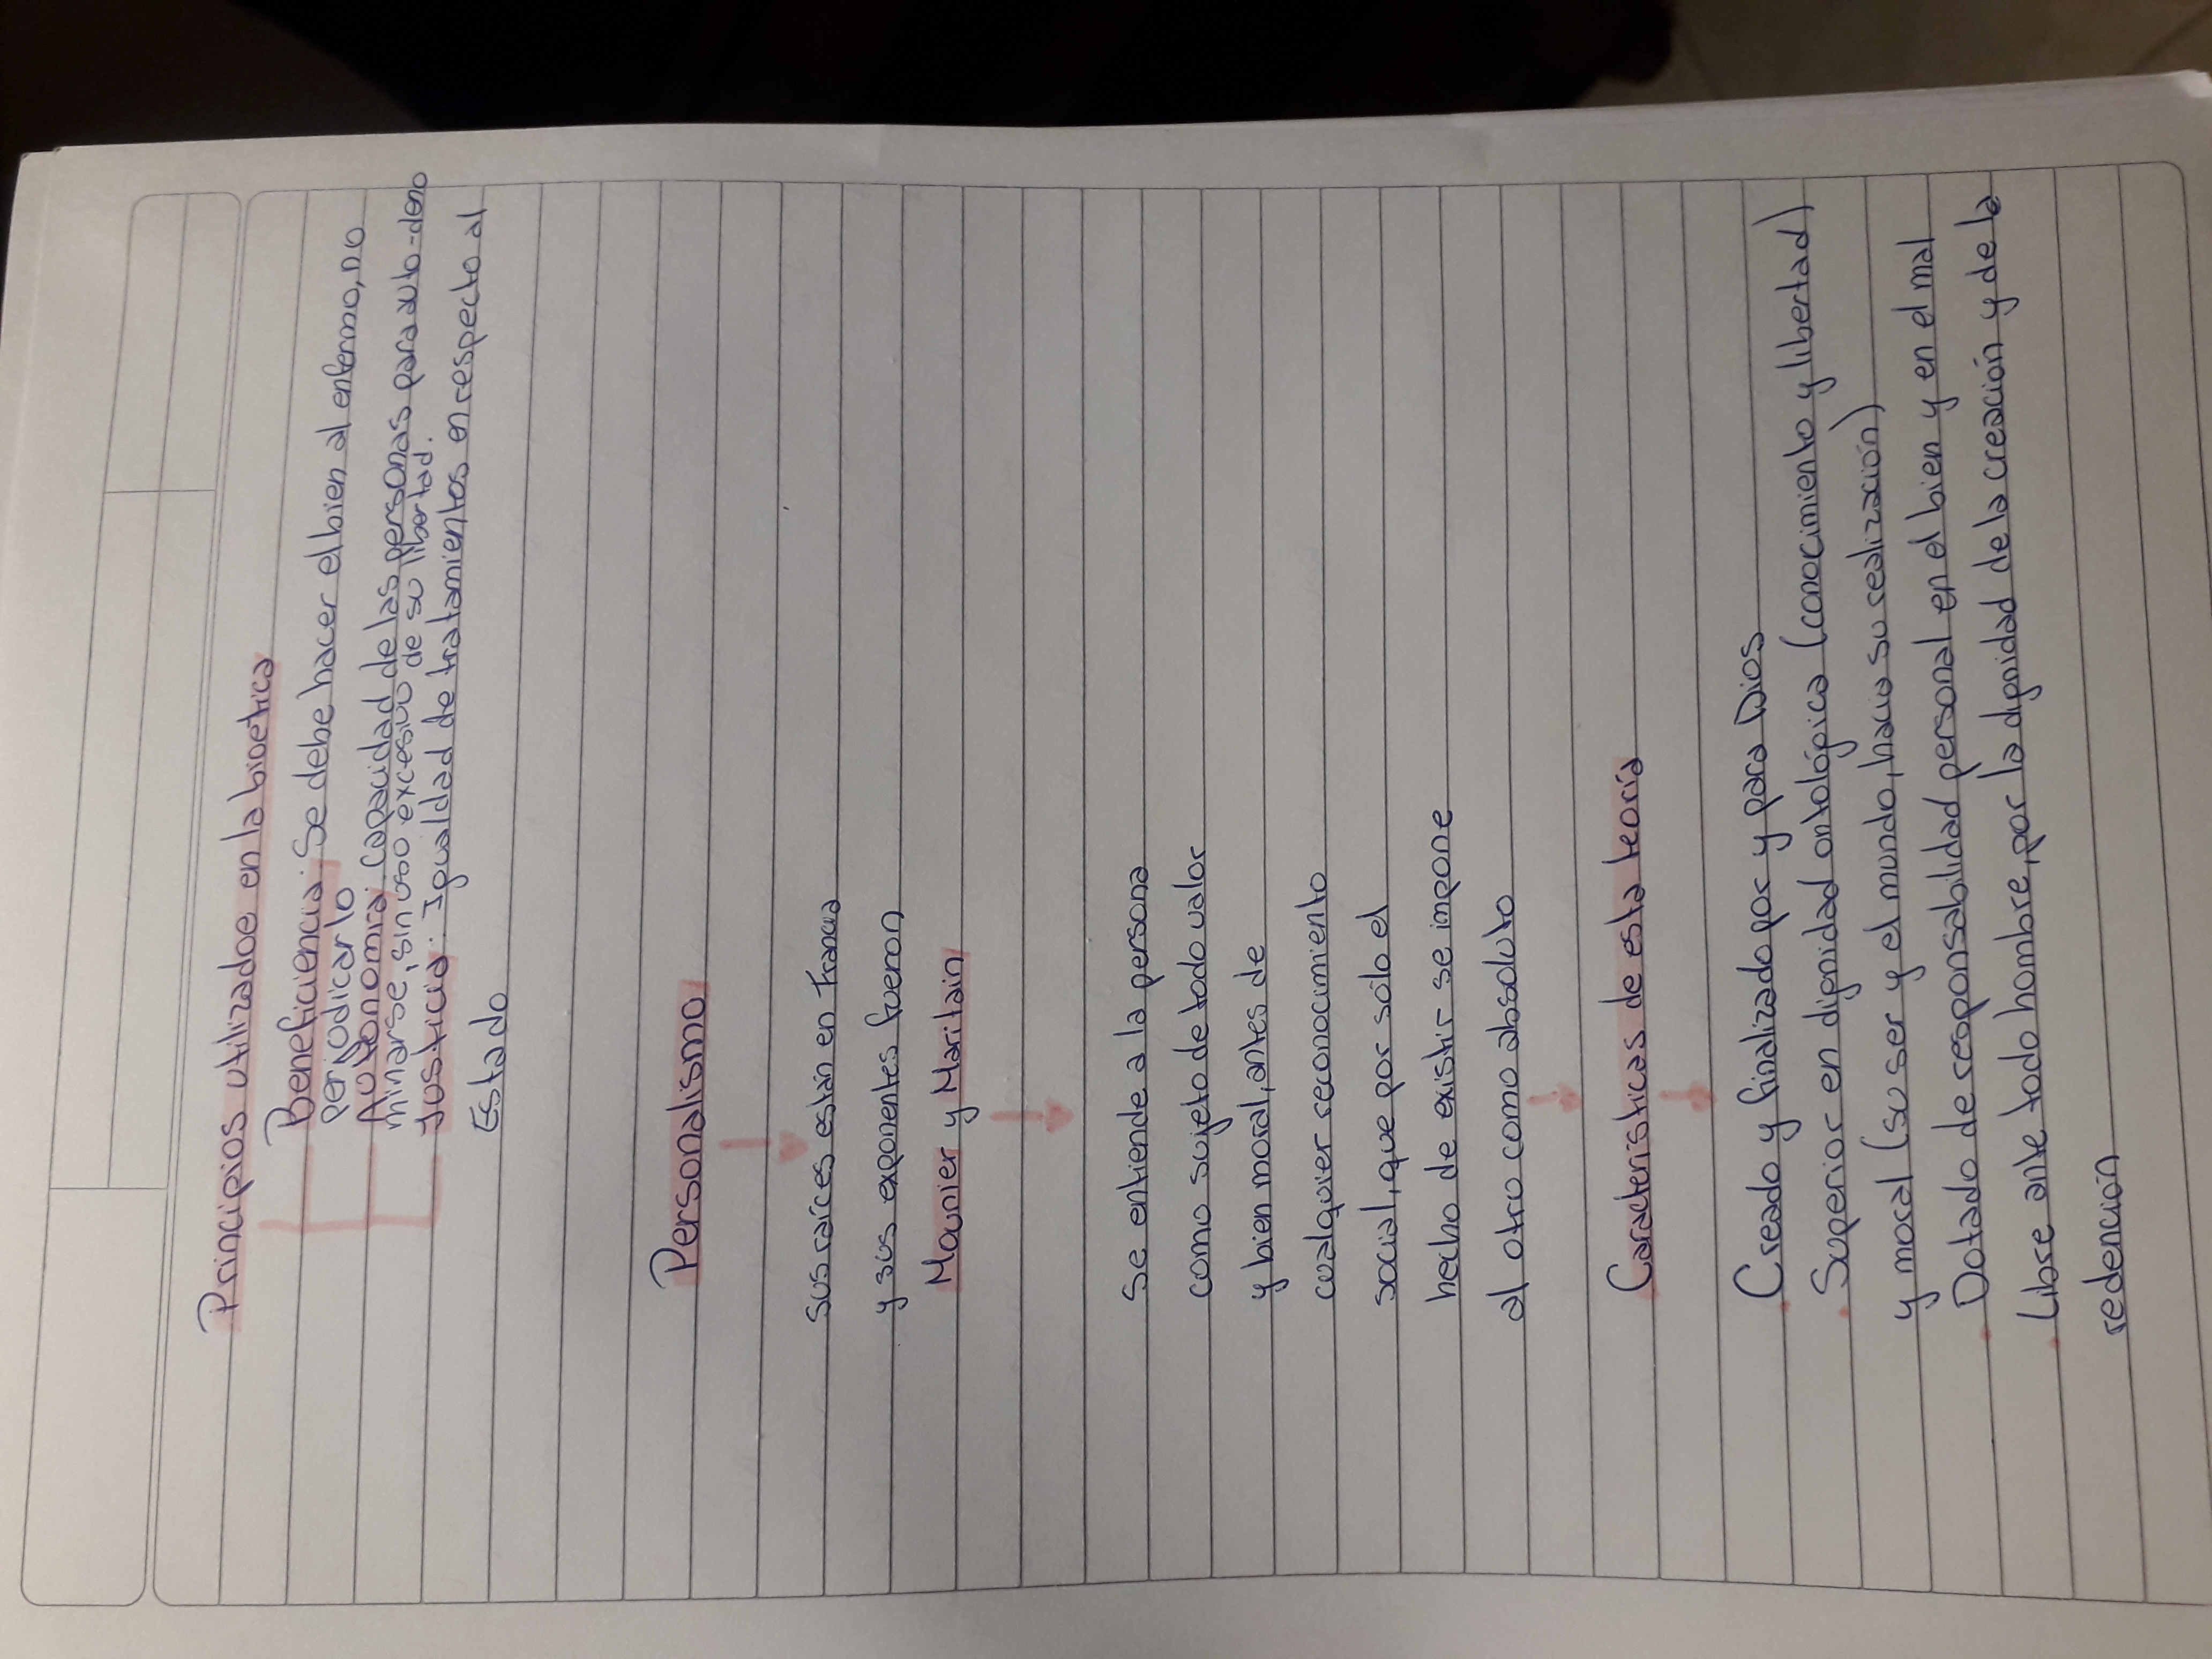 Principios utilizadoe en la bioetica
Beneficiencia: Se debe hacer el bien al enfermo, no
perjudicarlo
Autonomia: Capacidad de las personas para auto-deno
minarse, sin uso excesivo de su libertad.
Justicia: Igualdad de tratamientos en respecto al
Estado
Personalismo
sus raíces están en Francia
y sus exponentes fueron
Mounier y Maritain
Se entiende a la persona
como sujeto de todo valor
y bien moral, antes de
cualquier reconocimiento
social, que por sólo el
hecho de existir se impone
al otro como absoluto
Caracteristicas de esta teoría
. Creado y finalizado por y para Dios
. Superior en dignidad ontológica (conocimiento y libertad)
y moral (su ser y el mundo, hacia su realización)
. Dotado de responsabilidad personal en el bien y en el mal
. Libre ante todo hombre, por la dignidad de la creación y de la
redención